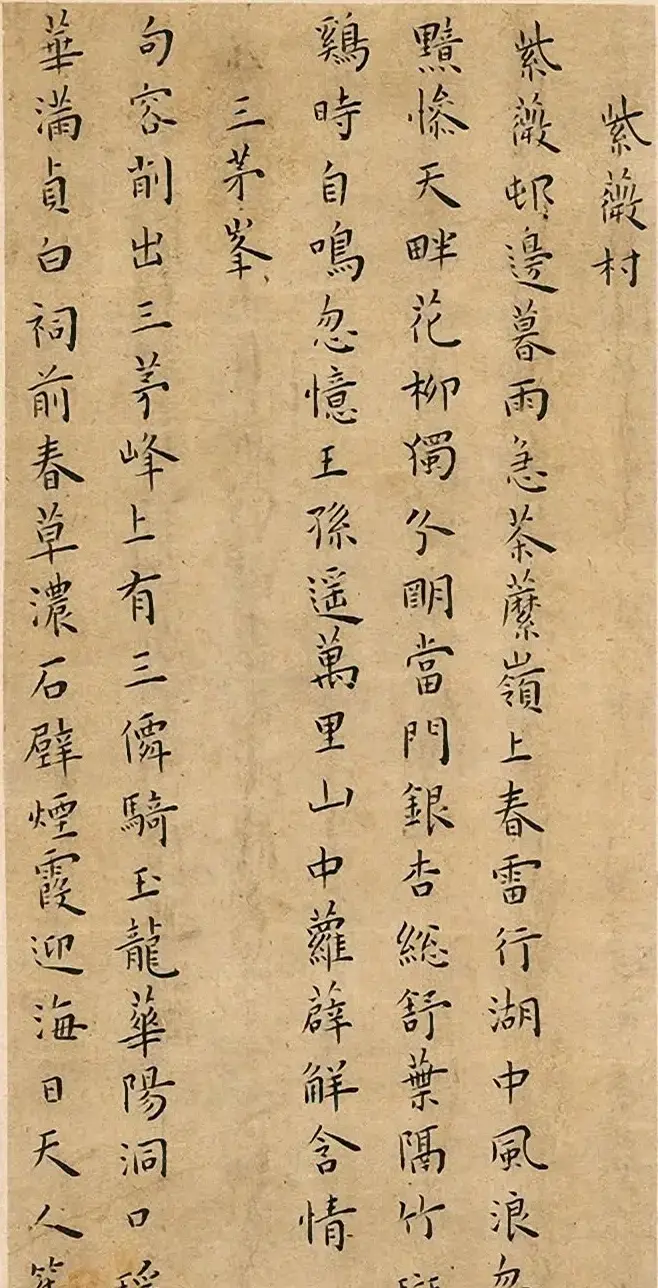 紫薇村
紫薇邨邊暮雨急茶蘪嶺上春雷行湖中風浪
黯慘天畔花柳獨分明當門銀杏總舒葉隔竹
鷄時自鳴忽憶王孫遥萬里山中蘿薜解含情
三茅峯
句容削出三茅峰上有三僊騎玉龍華陽洞口
華滿貞白祠前春草濃石壁煙霞迎海日天人